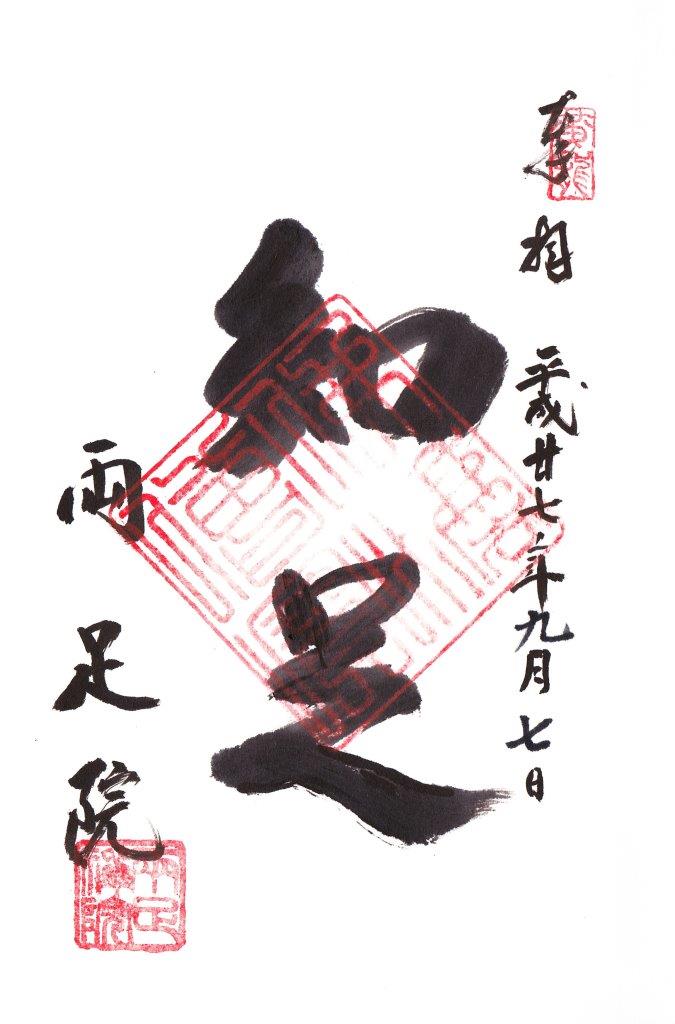 奉拝 平成廿七年九月七日
知足
両足院